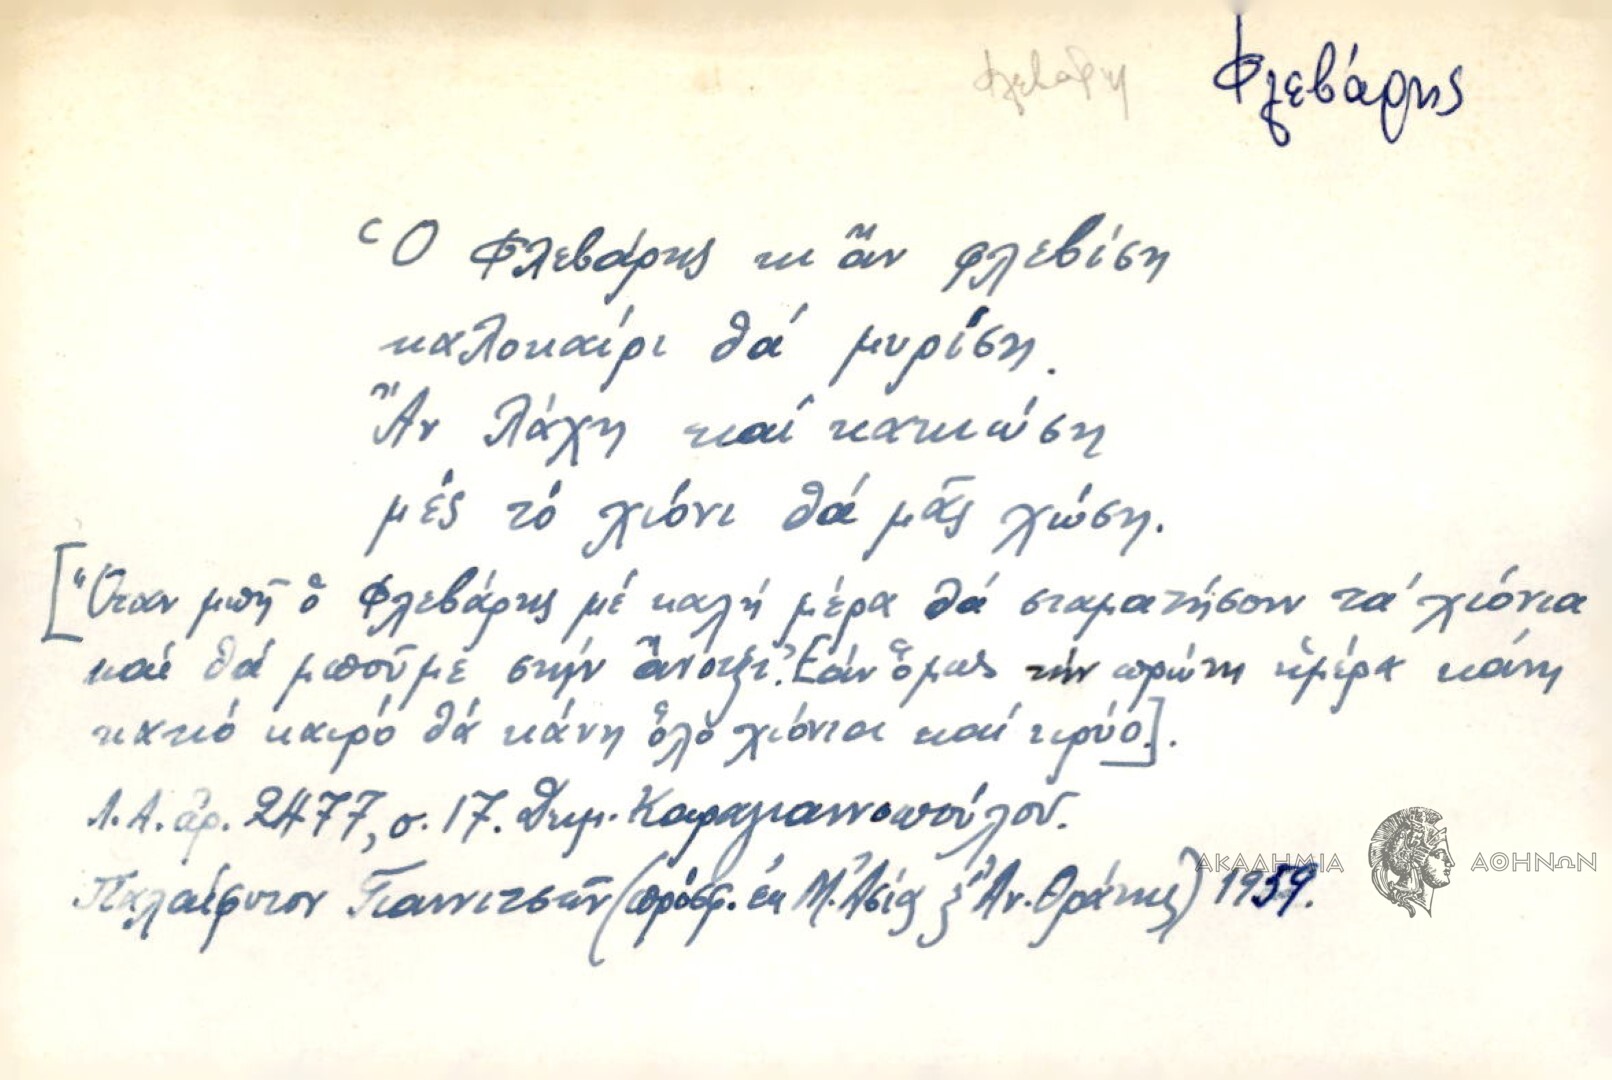 Φλεβάρη Φλεβάρης
Ὁ Φλεβάρης κι ἄν φλεβίση
καλοκαίρι θά μυρίση.
Ἄν λάχη καί κακιώση
μές τό χιόνι θά μᾶς χώση.
[Ὅταν μπῆ ὁ Φλεβάρης μέ καλή μέρα θά σταματήσουν τά χιόνια
καί θά μποῦμε στήν ἄνοιξι. Ἐάν ὅμως τήν πρώτη ἡμέρα κάνη
κακό καιρό θά κάνη ὅλο χιόνια καί κρύο.].
Λ.Α. ἀρ. 2477, σ. 17. Δημ. Καραγιαννοπούλου.
Παλαίφυτον Γιαννιτσῶν (πρόσφ. ἐκ Μ. Ἀσίας ἐξ Ἀν. Θράκης) 1959.
ΑΚΑΔΗΜΙΑ ΑΘΗΝΩΝ